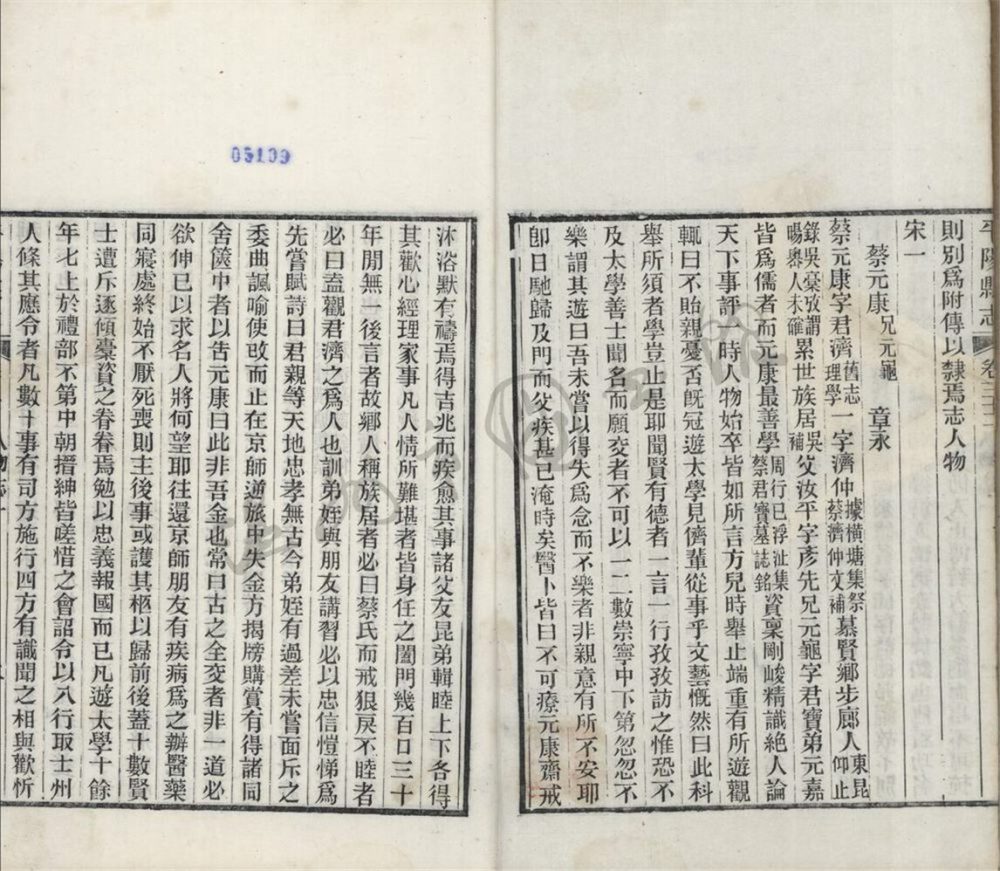 平陽縣志 卷三十
則別為附傳以隸焉志人物
宋一
蔡元康 兄元龜 章永
蔡元康字君濟舊志理學一字濟仲據橫塘集祭蔡濟仲文補慕賢鄉步廊人東昆仰止
錄吳槖攷謂暘嶴人未確累世族居吳補父汝平字彥先兄元龜字君寶弟元嘉
皆為儒者而元康最善學周行已浮沚集蔡君寶墓誌銘資稟剛峻精識絕人論
天下事評一時人物始卒皆如所言方兒時舉止端重有所遊觀
輒曰不貽親憂否旣冠遊太學見儕輩從事乎文藝慨然曰此科
舉所須者學豈止是耶聞賢有德者一言一行孜孜訪之惟恐不
及太學善士聞名而願交者不可以一二數崇寧中下第忽忽不
樂謂其遊曰吾未嘗以得失為念而不樂者非親意有所不安耶
卽日馳歸及門而父疾甚已淹時矣醫卜皆曰不可療元康齋戒
沐浴默有禱焉得吉兆而疾愈其事諸父友昆弟輯睦上下各得
其歡心經理家事凡人情所難堪者皆身任之闔門幾百口三十
年閒無一後言者故鄉人稱族居者必曰蔡氏而戒狠戾不睦者
必曰盍觀君濟之為人也訓弟姪與朋友講習必以忠信愷悌為
先嘗賦詩曰君親等天地忠孝無古今弟姪有過差未嘗面斥之
委曲諷喻使改而止在京師逆旅中失金方揭牓購賞有得諸同
舍篋中者以告元康曰此非吾金也常曰古之全交者非一道必
欲伸已以求名人將何望耶往還京師朋友有疾病為之辦醫藥
同寢處終始不厭死喪則主後事或護其柩以歸前後蓋十數賢
士遭斥逐傾槖資之眷眷焉勉以忠義報國而已凡遊太學十餘
年七上於禮部不第中朝搢紳皆嗟惜之會詔令以八行取士州
人條其應令者凡數十事有司方施行四方有識聞之相與歡忻
05199